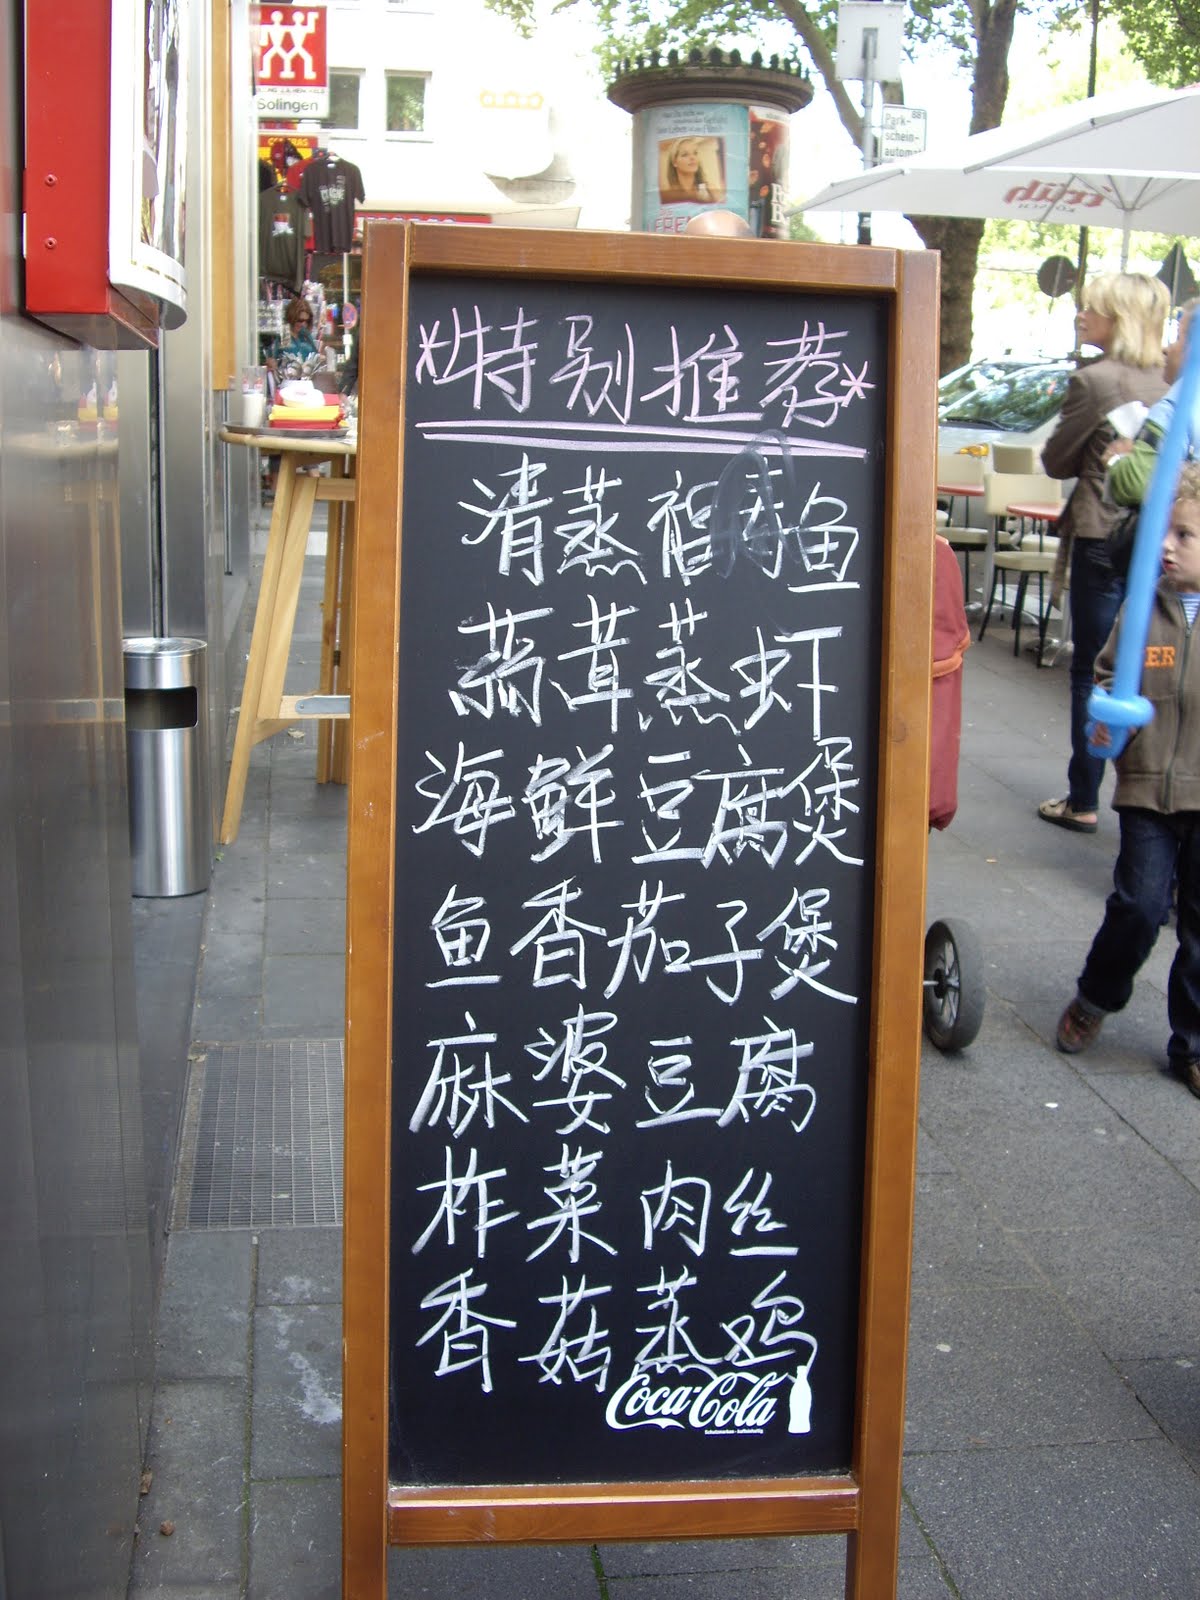 Solingen
Park-
schein-
automat
früh
KÖLSCH
*特别推荐*
清蒸福寿鱼
蒜茸蒸虾
海鲜豆腐煲
鱼香茄子煲
麻婆豆腐
柞菜肉丝
香菇蒸鸡
Coca-Cola
ER